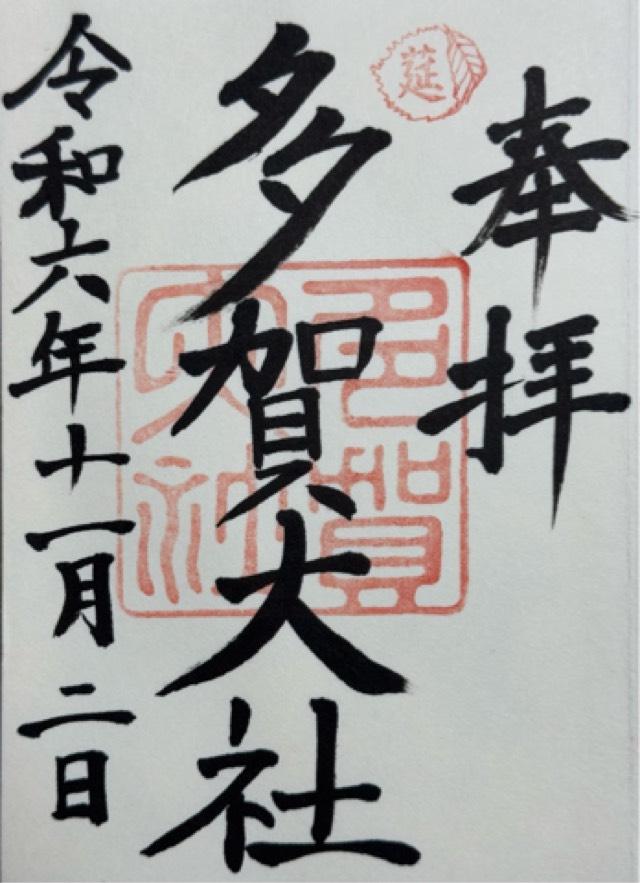 奉拝
莚
多賀大社
多賀大社
令和六年十一月二日